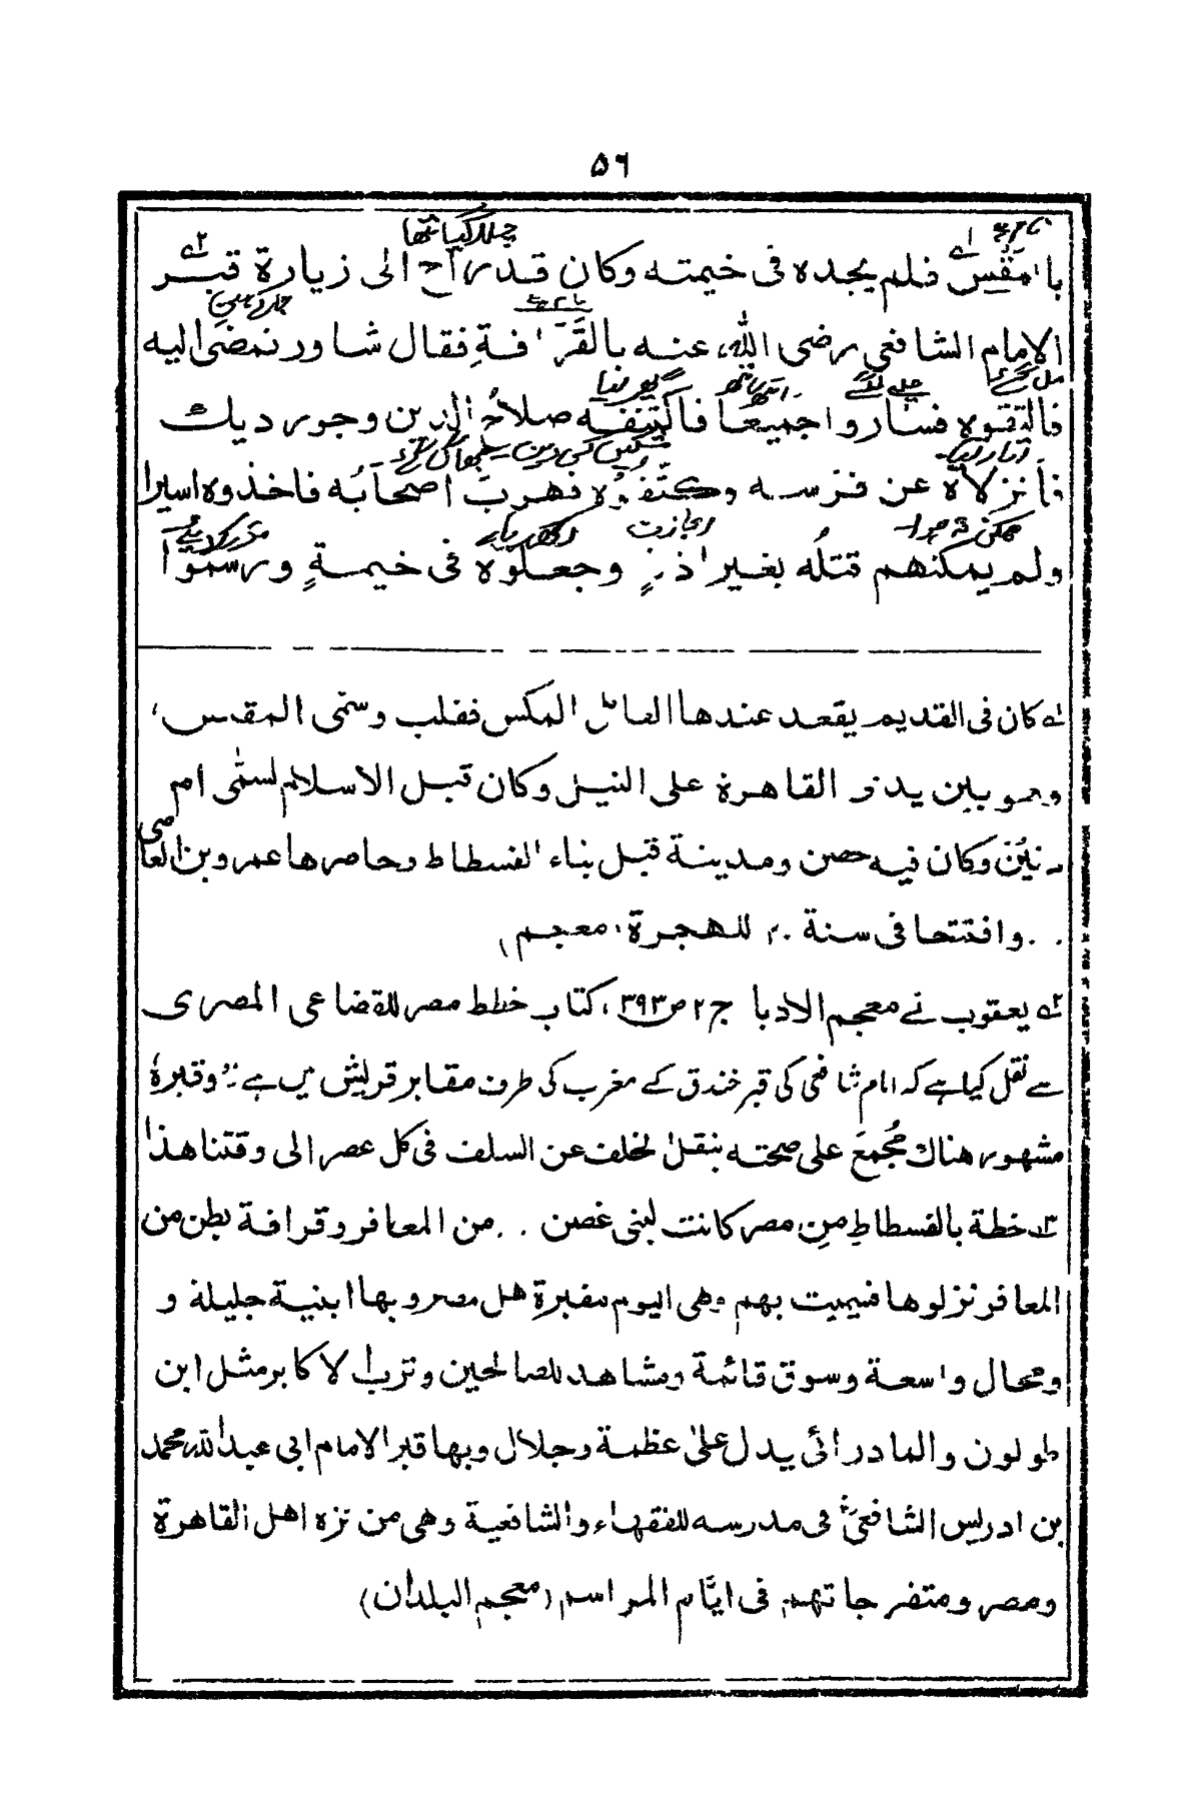 ۵۶
بالمقس فلم يجده فى خيمته وكان قد راح الى زيارة قبر
چلا گیا تھا
الامام الشافعي رضى الله عنه بالقرافة فقال شاور نمضى اليه
فالتقوه فساروا جميعا فاكتنفه صلاح الدين وجورديك
چلنے لگے
گھیر لیا
فأنزلاه عن فرسه وكتفوه فهرب اصحابه فاخذوه اسيرا
ولم يمكنهم قتله بغير اذن وجعلوه فى خيمة ورسموا
ممکن نہ ہوا
اجازت
له كان فى القديم يقعد عندها العامل المكس فقلب وسمى المقس،
وهو بين يدي القاهرة على النيل وكان قبل الاسلام لسمّى ام
دنين وكان فيه حصن ومدينة قبل بناء الفسطاط وحاصرها عمرو بن العاصى
. . وافتتحا فى سنة ۲۰ للهجرة (معجم)
۲ه يعقوب نے معجم الادبا ج ۲ ص ۳۹۳، كتاب خطط مصر للقضاعى المصرى
سے نقل کیا ہے کہ امام شافعی کی قبر خندق کے مغرب کی طرف مقابر قریش میں ہے: وقبرهٔ
مشهور هناك مُجمعَ على صحته بنقل لخلف عن السلف فى كل عصر الى وقتنا هذا
۳ه خطة بالفسطاطِ مِن مصر كانت لبنى غصن . . من المعافر وقرافة بطن من
المعافر نزلوها فسميت بهم وهى اليوم مقبرة هل مصر وبها ابنية جليلة و
ومحال واسعة وسوق قائمة ومشاهد للصالحين وترب لاكابر مثل ابن
طولون والمادرائى يدل على عظمة وجلال وبها قبر الامام ابى عبد الله محمد
بن ادريس الشافعى فى مدرسه للفقهاء والشافعية وهى من نزه اهل القاهرة
ومصر ومتفرجاتهم فى ايّام المراسم (معجم البلدان)